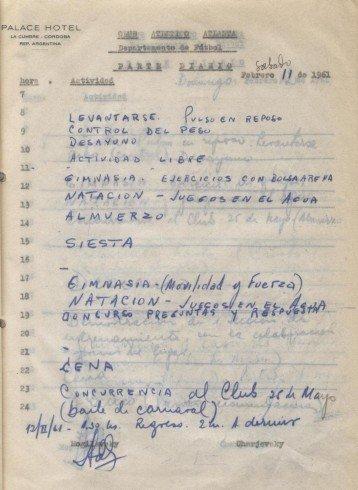 PALACE HOTEL
LA CUMBRE - CORDOBA
REP. ARGENTINA
CLUB ATLETICO ATLANTA
Departamento de Fútbol
PARTE DIARIO
Sabado
Febrero 11 de 1961
hora. Actividad
7
8 LEVANTARSE. PULSO EN REPOSO
CONTROL DEL PESO
9 DESAYUNO
10 ACTIVIDAD LIBRE
11 GIMNASIA - EJERCICIOS CON BOLSA ARENA
12 NATACION - JUEGOS EN EL AGUA
13 ALMUERZO
14
15 SIESTA
16
17 GIMNASIA - (Movilidad y Fuerza)
18 NATACION - JUEGOS EN EL AGUA
19 CONCURSO PREGUNTAS Y RESPUESTA
20
21
22 CENA
23 CONCURRENCIA al Club 25 de Mayo
24 (baile de carnaval)
12/II/61 - 1.30 hs. Regreso. 2 hs. A dormir
Mogilevsky